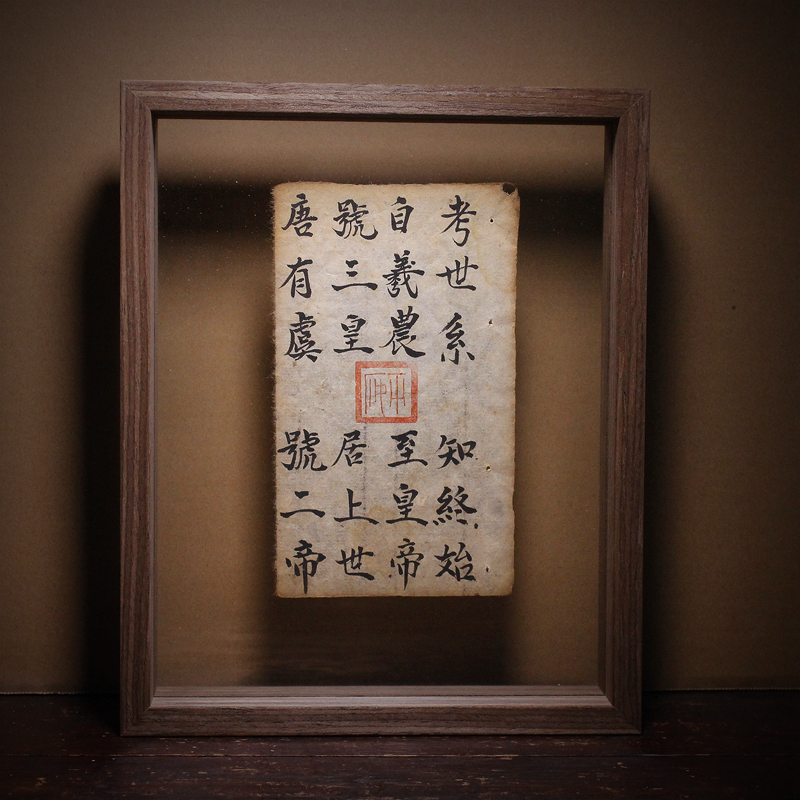 考世系　知終始
自羲農　至皇帝
號三皇　居上世
唐有虞　號二帝